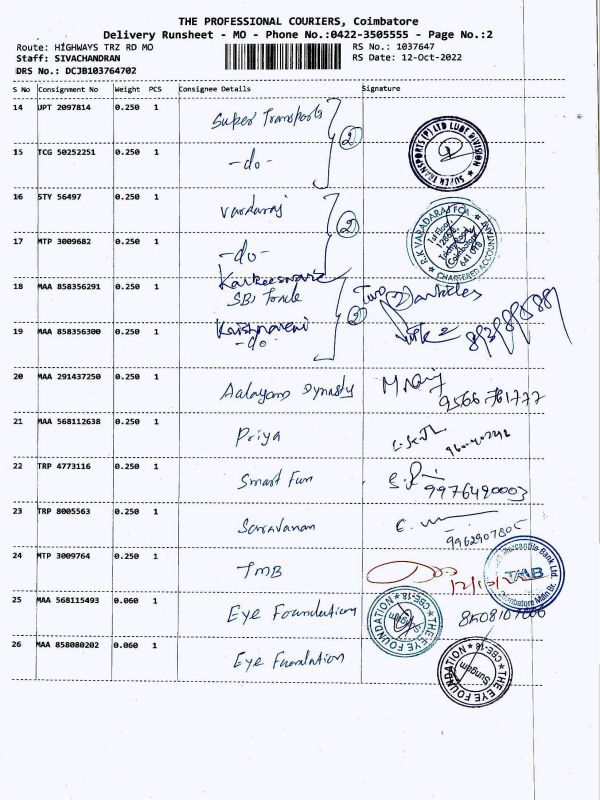 THE PROFESSIONAL COURIERS, Coimbatore
Delivery Runsheet - MO - Phone No.:0422-3505555 - Page No.:2
Route: HIGHWAYS TRZ RD MO
RS No.: 1037647
Staff: SIVACHANDRAN
RS Date: 12-Oct-2022
DRS No.: DCJB103764702
S No Consignment No Weight PCS Consignee Details Signature
14 UPT 2097814 0.250 1 Super Transports 2
SUPER TRANSPORTS (P) LTD LUBE DIVISION
15 TCG 50252251 0.250 1 -do-
16 STY 56497 0.250 1 Vardaraj 2
R.K VARADARAJ FCA
CHARTERED ACCOUNTANT
1st Floor,
Coimbatore
17 MTP 3009682 0.250 1 -do-
18 MAA 858356291 0.250 1
SBI 2 Two (2) articles
19 MAA 858356300 0.250 1 Krishnaveni
-do-
20 MAA 291437250 0.250 1 Aalayam Dynasty
9566 761777
21 MAA 568112638 0.250 1 Priya
22 TRP 4773116 0.250 1 Smart Fun
9976490003
23 TRP 8005563 0.250 1 Saravanan
24 MTP 3009764 0.250 1 TMB
Mercantile Bank Ltd.
TMB
Coimbatore Main Br.
25 MAA 568115493 0.060 1 Eye Foundation
THE EYE FOUNDATION CBE-18
Sungam
26 MAA 858080202 0.060 1 Eye Foundation
THE EYE FOUNDATION CBE-18
Sungam